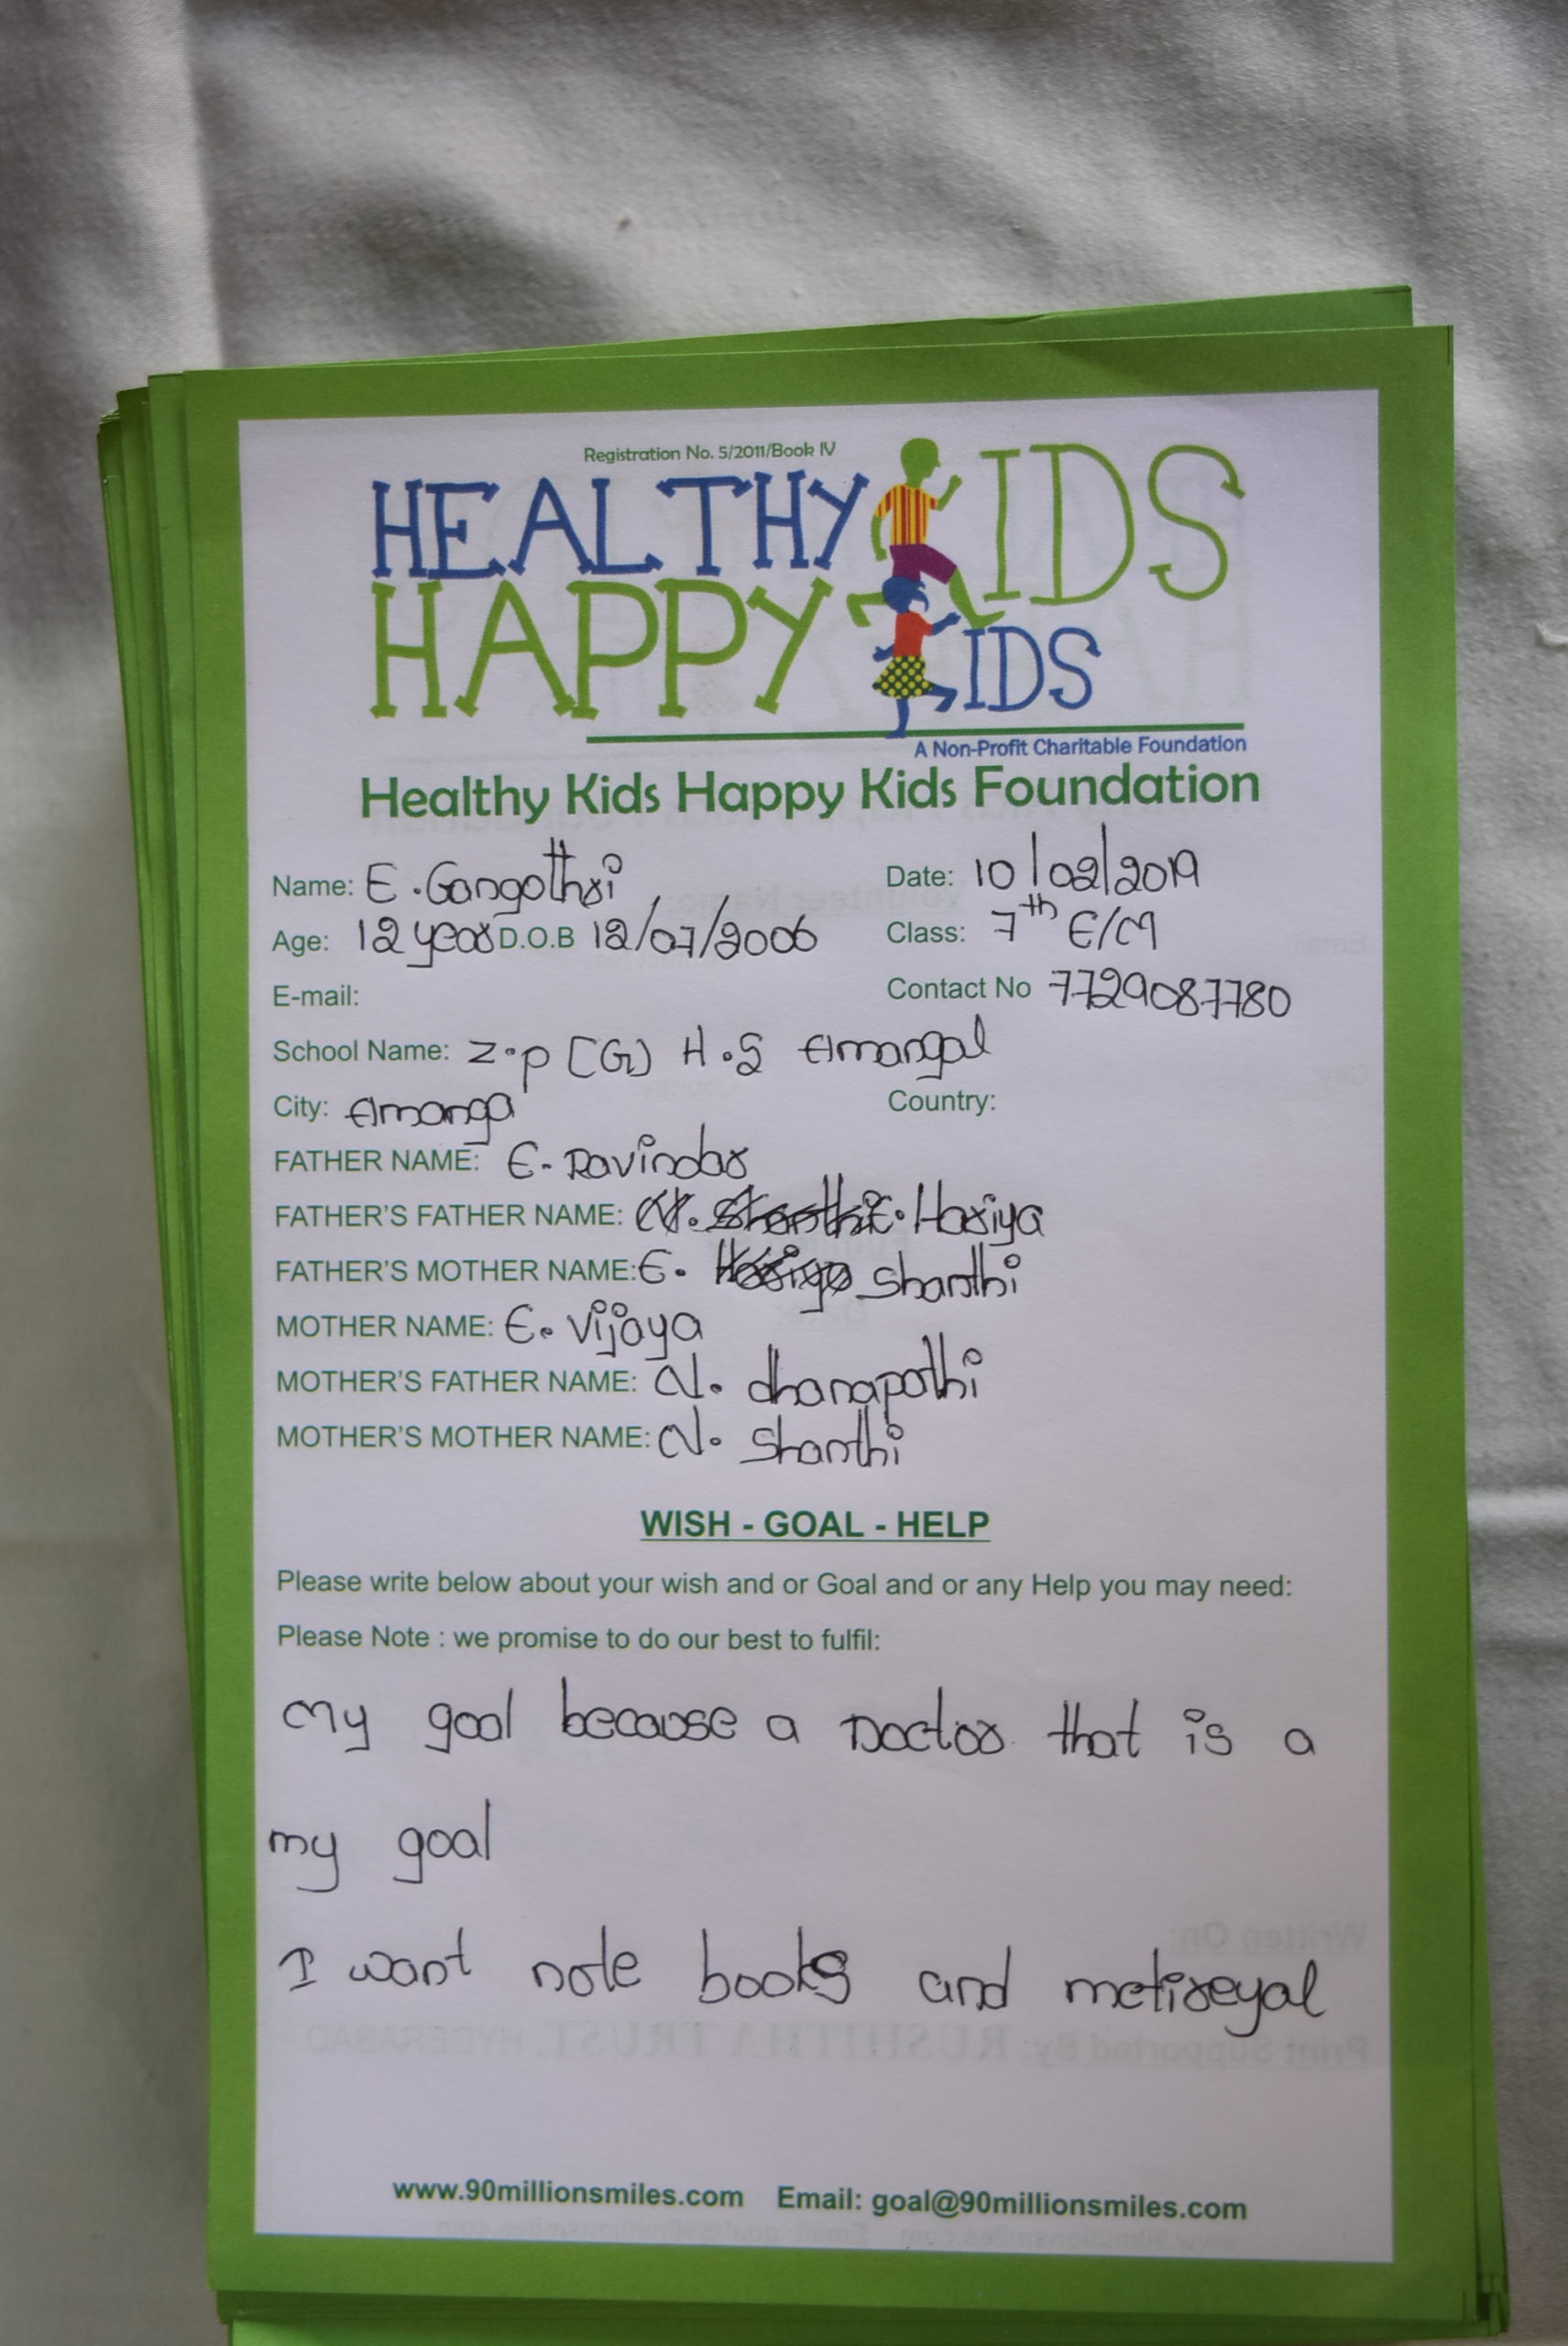 Registration No. 5/2011/Book IV
HEALTHY KIDS
HAPPY KIDS
A Non-Profit Charitable Foundation
Healthy Kids Happy Kids Foundation
Name: E. Gangothri Date: 10/02/2019
Age: 12 year D.O.B 12/07/2006 Class: 7th E/M
E-mail: Contact No 7729087780
School Name: Z.p (G) H.S Amangal
City: Amanga Country:
FATHER NAME: E. Ravindar
FATHER'S FATHER NAME: N. Shanthi E. Hariya
FATHER'S MOTHER NAME: E. Hariya Shanthi
MOTHER NAME: E. Vijaya
MOTHER'S FATHER NAME: N. dhanapathi
MOTHER'S MOTHER NAME: N. Shanthi
WISH - GOAL - HELP
Please write below about your wish and or Goal and or any Help you may need:
Please Note : we promise to do our best to fulfil:
My goal because a Doctor that is a
my goal
I want note books and metireyal
www.90millionsmiles.com Email: goal@90millionsmiles.com